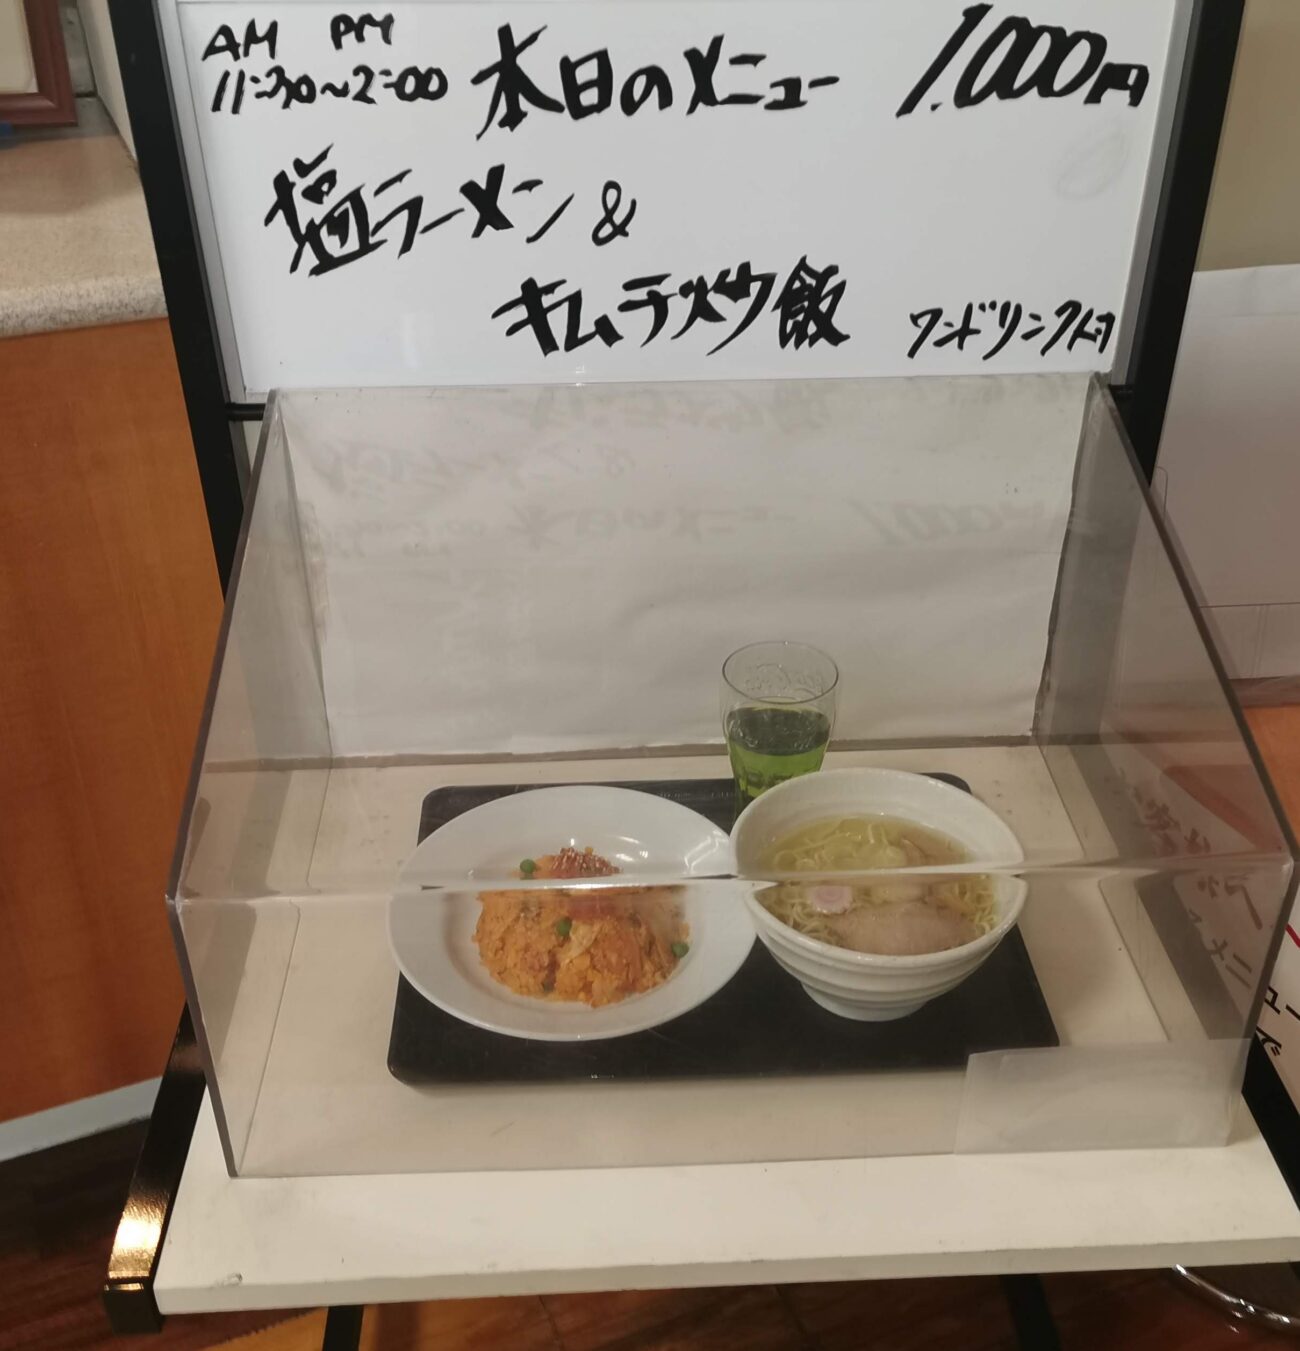 AM PM
11:30~2:00 本日のメニュー 1.000円
塩ラーメン &
キムチ炒飯 ワンドリンク付
メニュー